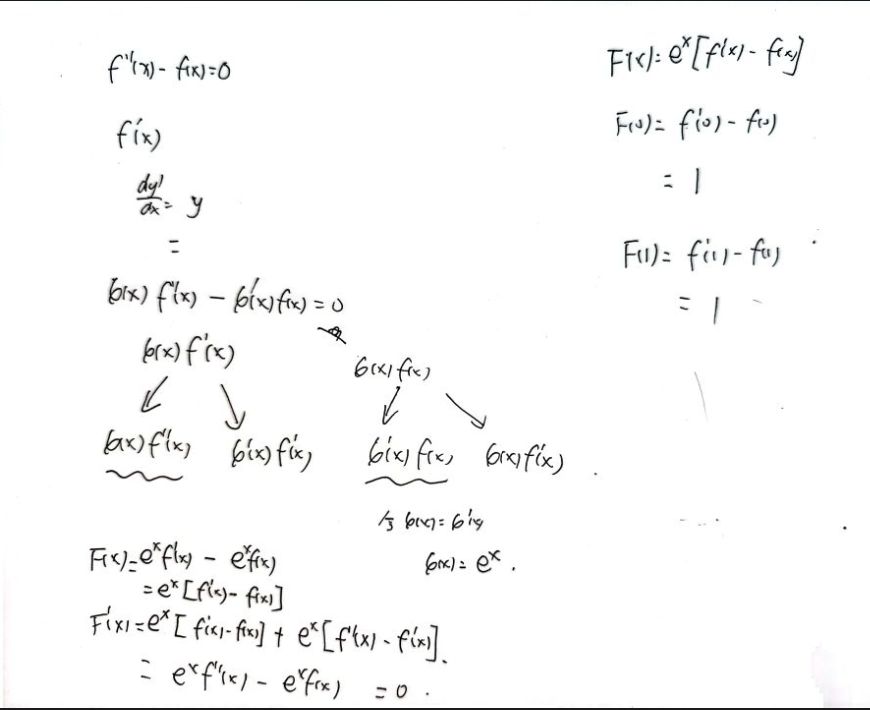 f''(x) - f(x) = 0
f'(x)
dy'/dx = y
=
G(x) f''(x) - G'(x) f(x) = 0
G(x) f'(x)
G(x) f(x)
G(x) f''(x) G'(x) f'(x) G'(x) f(x) G(x) f'(x)
G(x) = G'(x)
G(x) = e^x.
F(x) = e^x f'(x) - e^x f(x)
= e^x [f'(x) - f(x)]
F'(x) = e^x [f'(x) - f(x)] + e^x [f''(x) - f'(x)].
= e^x f''(x) - e^x f(x) = 0.
F(x) = e^x [f'(x) - f(x)]
F(0) = f'(0) - f(0)
= 1
F(1) = f'(1) - f(1)
= 1